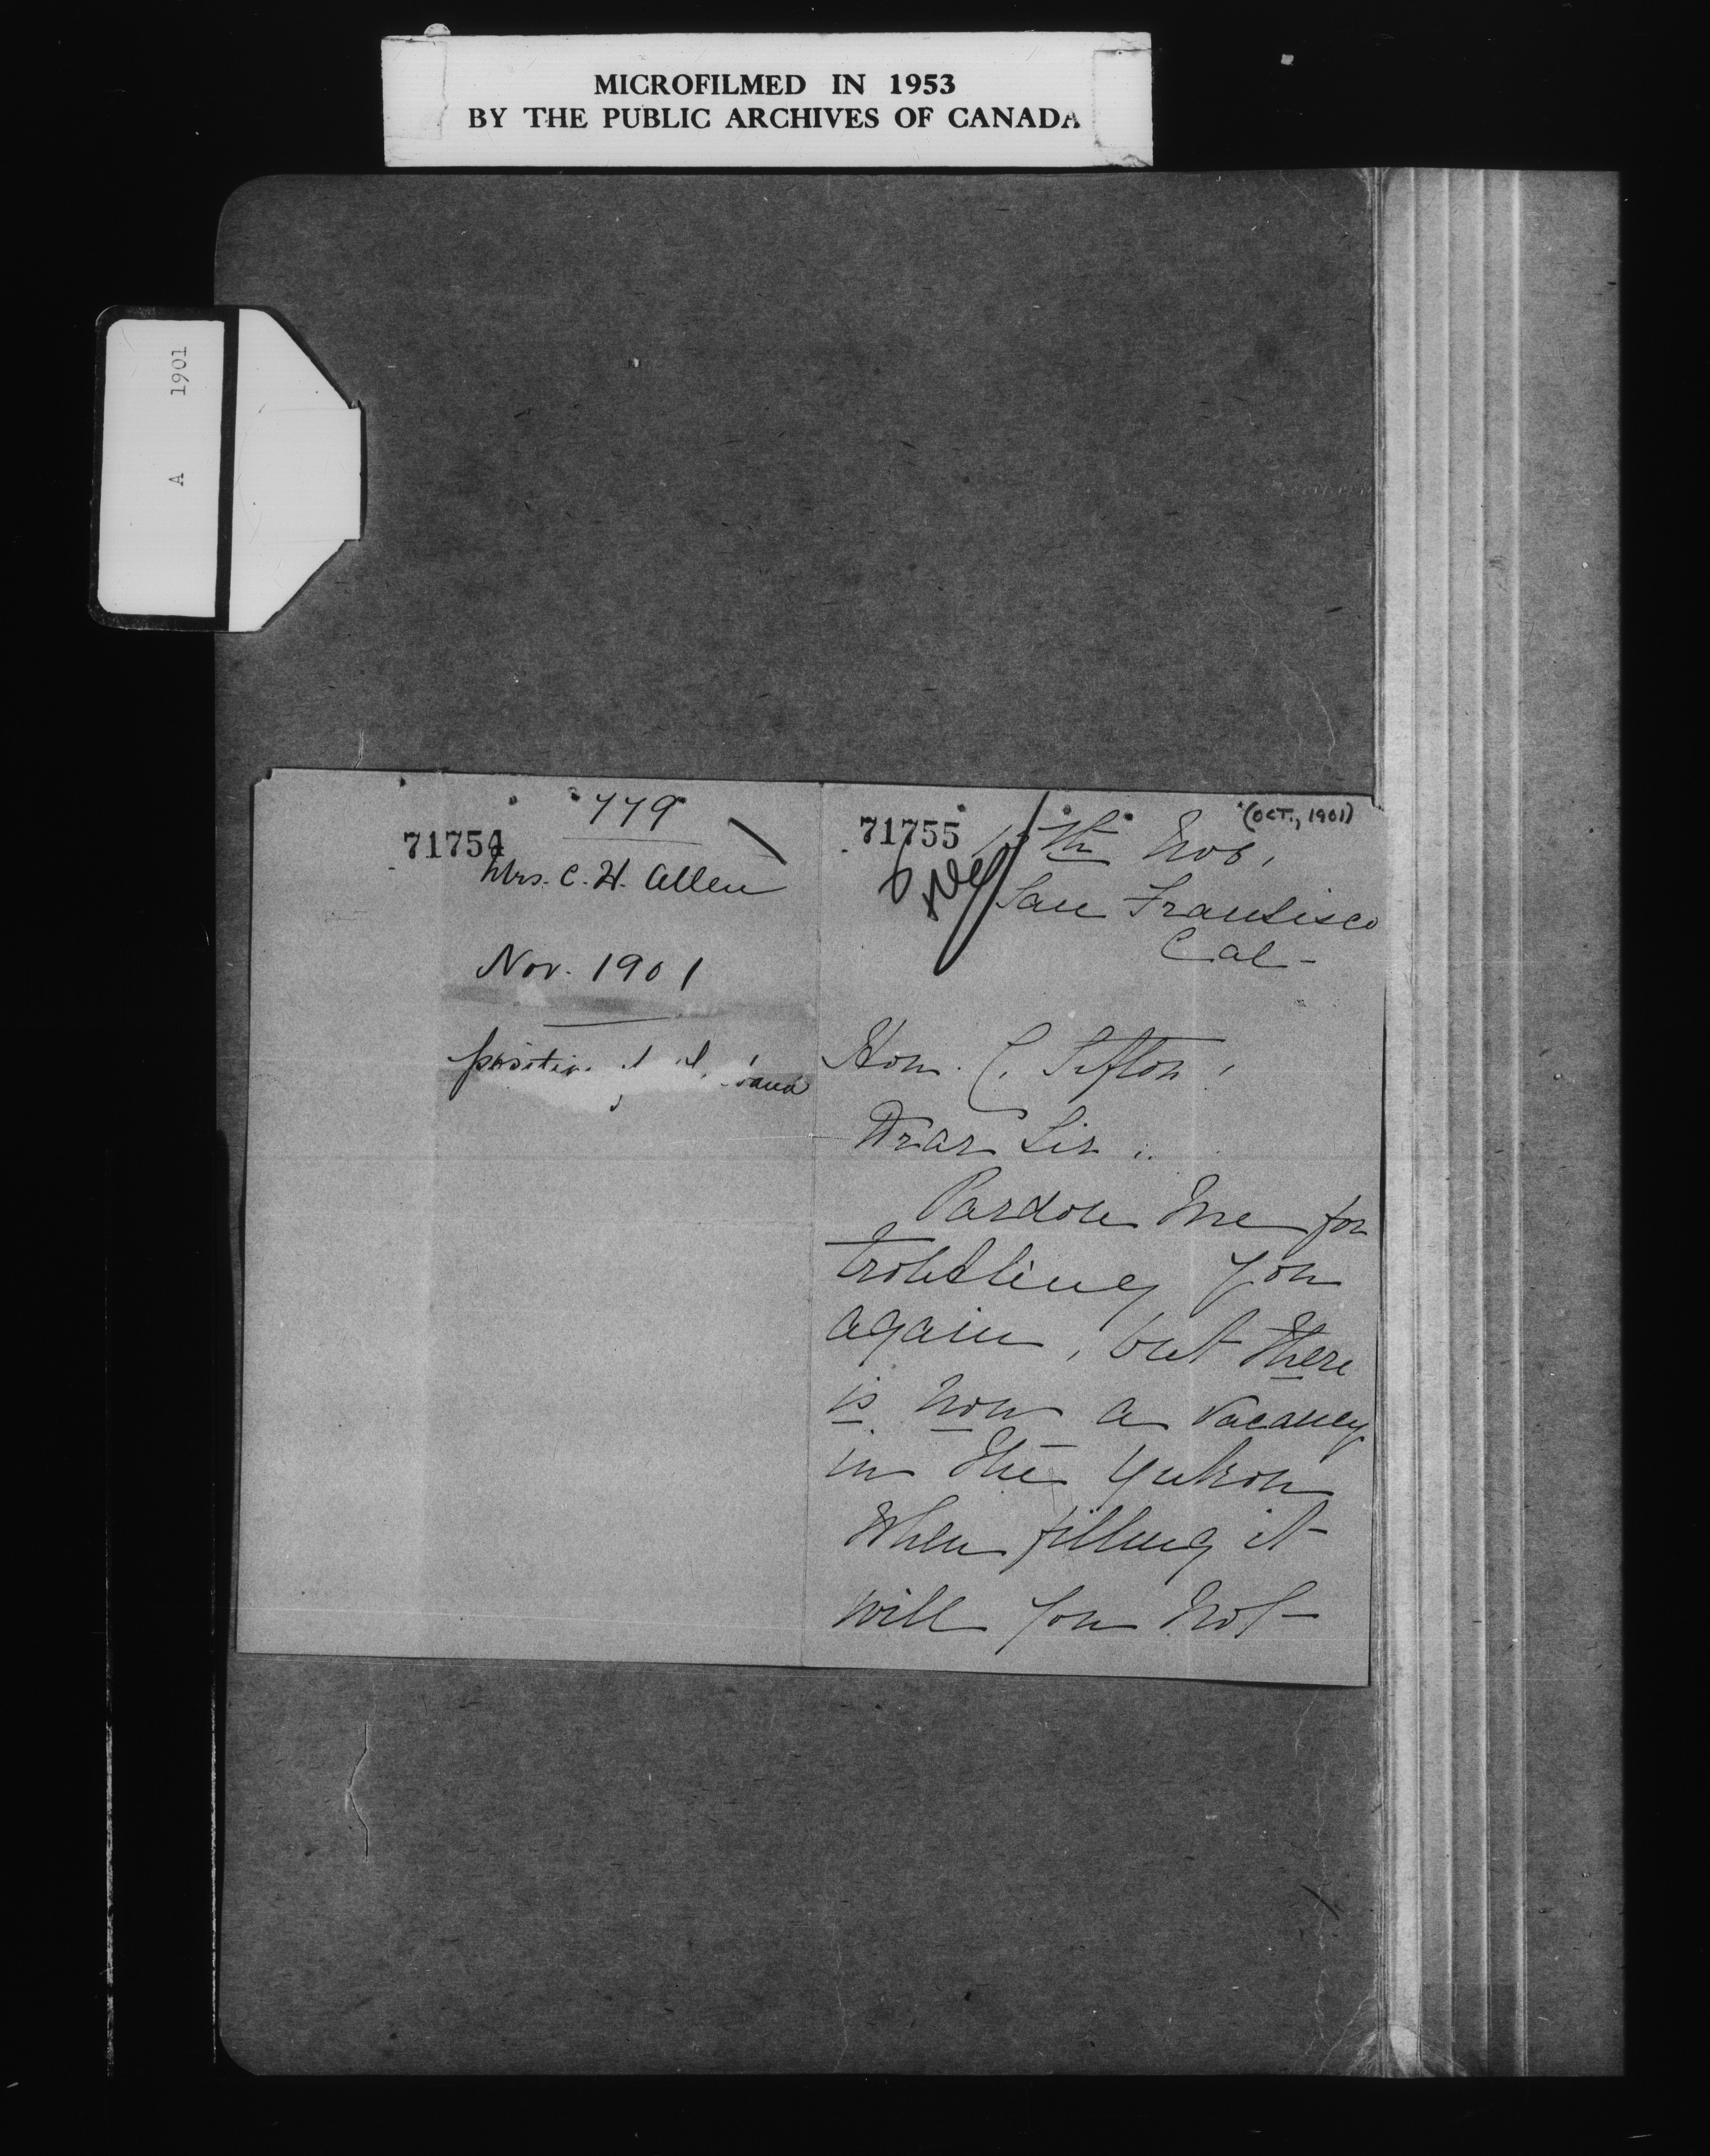 MICROFILMED IN 1953
BY THE PUBLIC ARCHIVES OF CANADA
A 1901
779
71754
Mrs. C. H. Allen
Nov. 1901
71755
(OCT., 1901)
th Nov,
San Fransisco
Cal -
Hon. C. Sifton!
Dear Sir :
Pardon me for
troubling you
again, but there
is now a vacancy
in the Yukon
When filling it
will you not